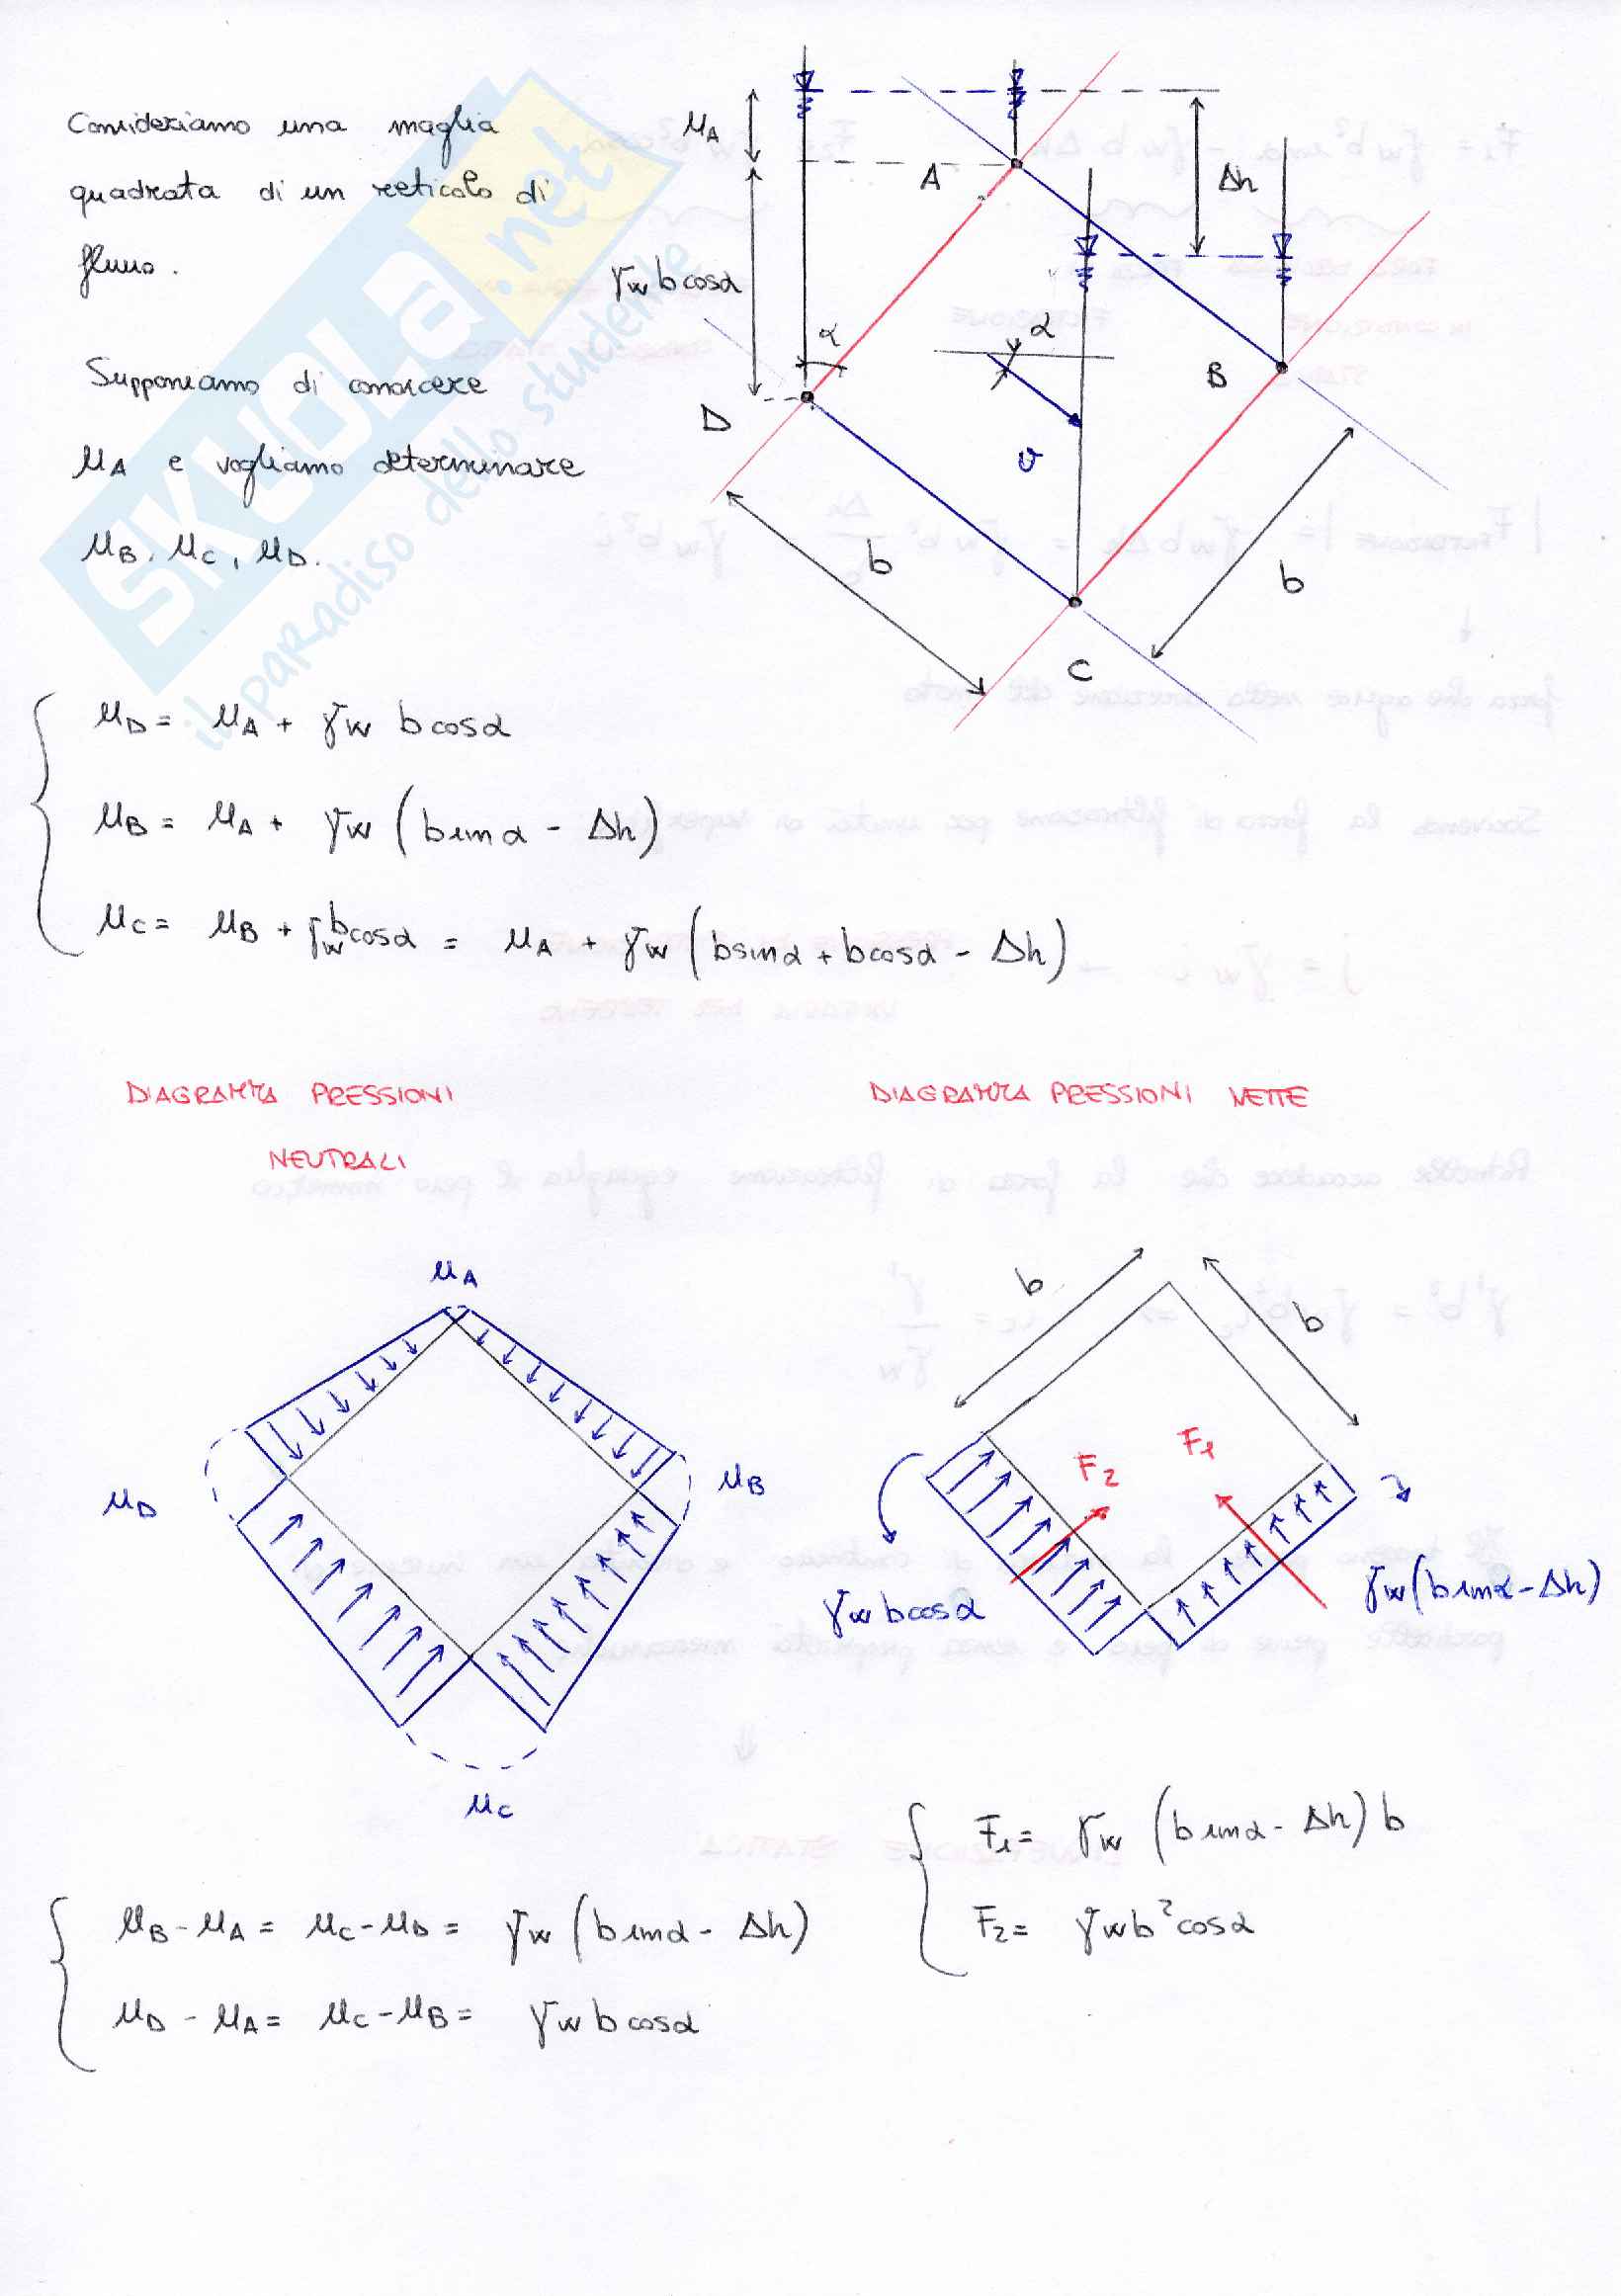 Consideriamo una maglia
quadrata di un reticolo di
flusso.
Supponiamo di conoscere
uA e vogliamo determinare
uB, uC, uD.
uA
γw b cosα
A
Δh
α
α
B
D
v
b
b
C
uD = uA + γw b cosα
uB = uA + γw (b sinα - Δh)
uC = uB + γw b cosα = uA + γw (b sinα + b cosα - Δh)
DIAGRAMMA PRESSIONI
NEUTRALI
DIAGRAMMA PRESSIONI NETTE
uA
uD
uB
uC
b
b
F2
F1
γw b cosα
γw (b sinα - Δh)
F1 = γw (b sinα - Δh) b
F2 = γw b² cosα
uB - uA = uC - uD = γw (b sinα - Δh)
uD - uA = uC - uB = γw b cosα
SKUOLA.net
il paradiso dello studente